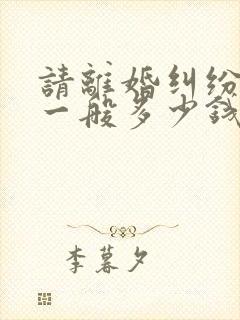 請離婚糾紛
一般多少錢
李暮夕